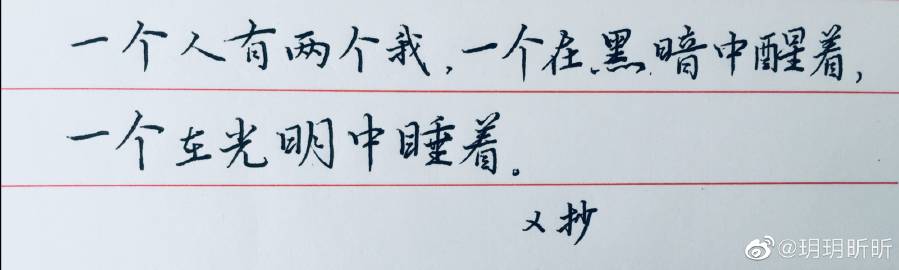 一个人有两个我,一个在黑暗中醒着,
一个在光明中睡着。
又抄
@玥玥昕昕